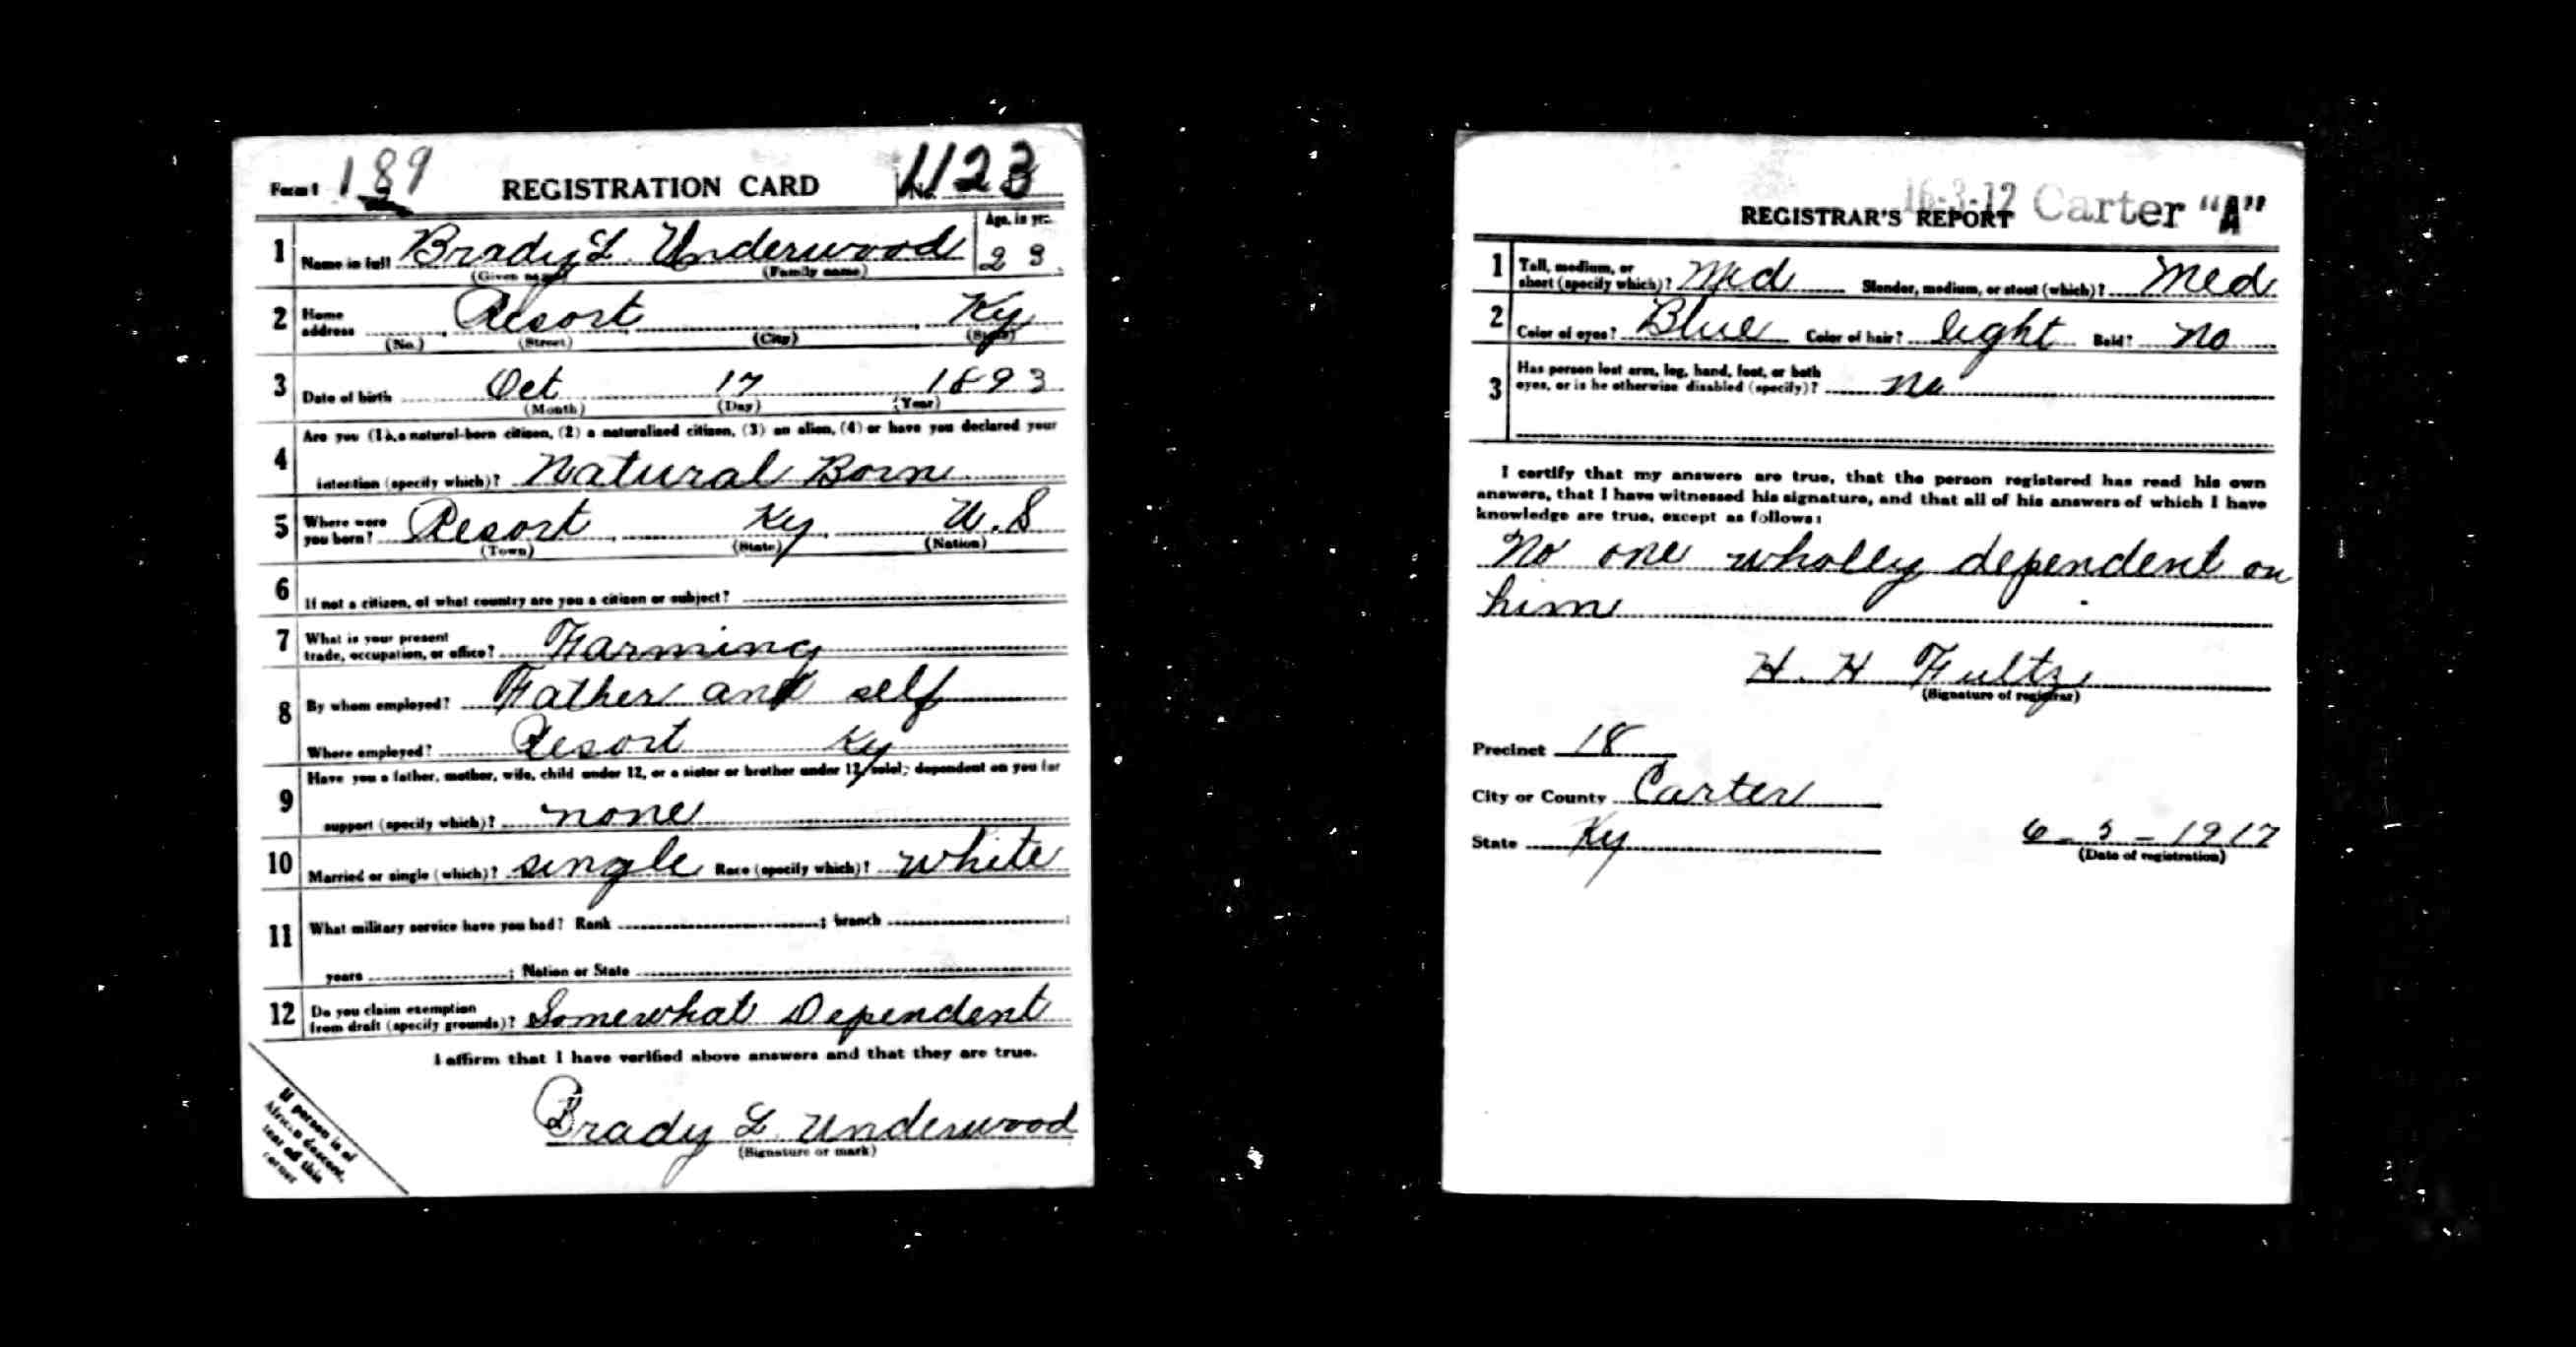 Form 1 189 REGISTRATION CARD No. 1123
1 Name in full Brady L. Underwood Age, in yrs. 23
(Given name) (Family name)
2 Home address Resort Ky
(No.) (Street) (City) (State)
3 Date of birth Oct 17 1893
(Month) (Day) (Year)
4 Are you (1) a natural-born citizen, (2) a naturalized citizen, (3) an alien, (4) or have you declared your
intention (specify which)? Natural Born
5 Where were you born? Resort Ky, U.S
(Town) (State) (Nation)
6 If not a citizen, of what country are you a citizen or subject?
7 What is your present
trade, occupation, or office? Farming
8 By whom employed? Father and self
Where employed? Resort Ky
9 Have you a father, mother, wife, child under 12, or a sister or brother under 12, solely dependent on you for
support (specify which)? none
10 Married or single (which)? single Race (specify which)? white
11 What military service have you had? Rank ; branch ;
years ; Nation or State
12 Do you claim exemption
from draft (specify grounds)? Somewhat Dependent
I affirm that I have verified above answers and that they are true.
Brady L. Underwood
(Signature or mark)
If person is of
African descent,
tear off this
corner
16-3-17 Carter "A"
REGISTRAR'S REPORT
1 Tall, medium, or
short (specify which)? Med Slender, medium, or stout (which)? Med
2 Color of eyes? Blue Color of hair? light Bald? No
3 Has person lost arm, leg, hand, foot, or both
eyes, or is he otherwise disabled (specify)? No
I certify that my answers are true, that the person registered has read his own
answers, that I have witnessed his signature, and that all of his answers of which I have
knowledge are true, except as follows:
No one wholly dependent on
him
H. H Fultz
(Signature of registrar)
Precinct 18
City or County Carter
State Ky 6-5-1917
(Date of registration)